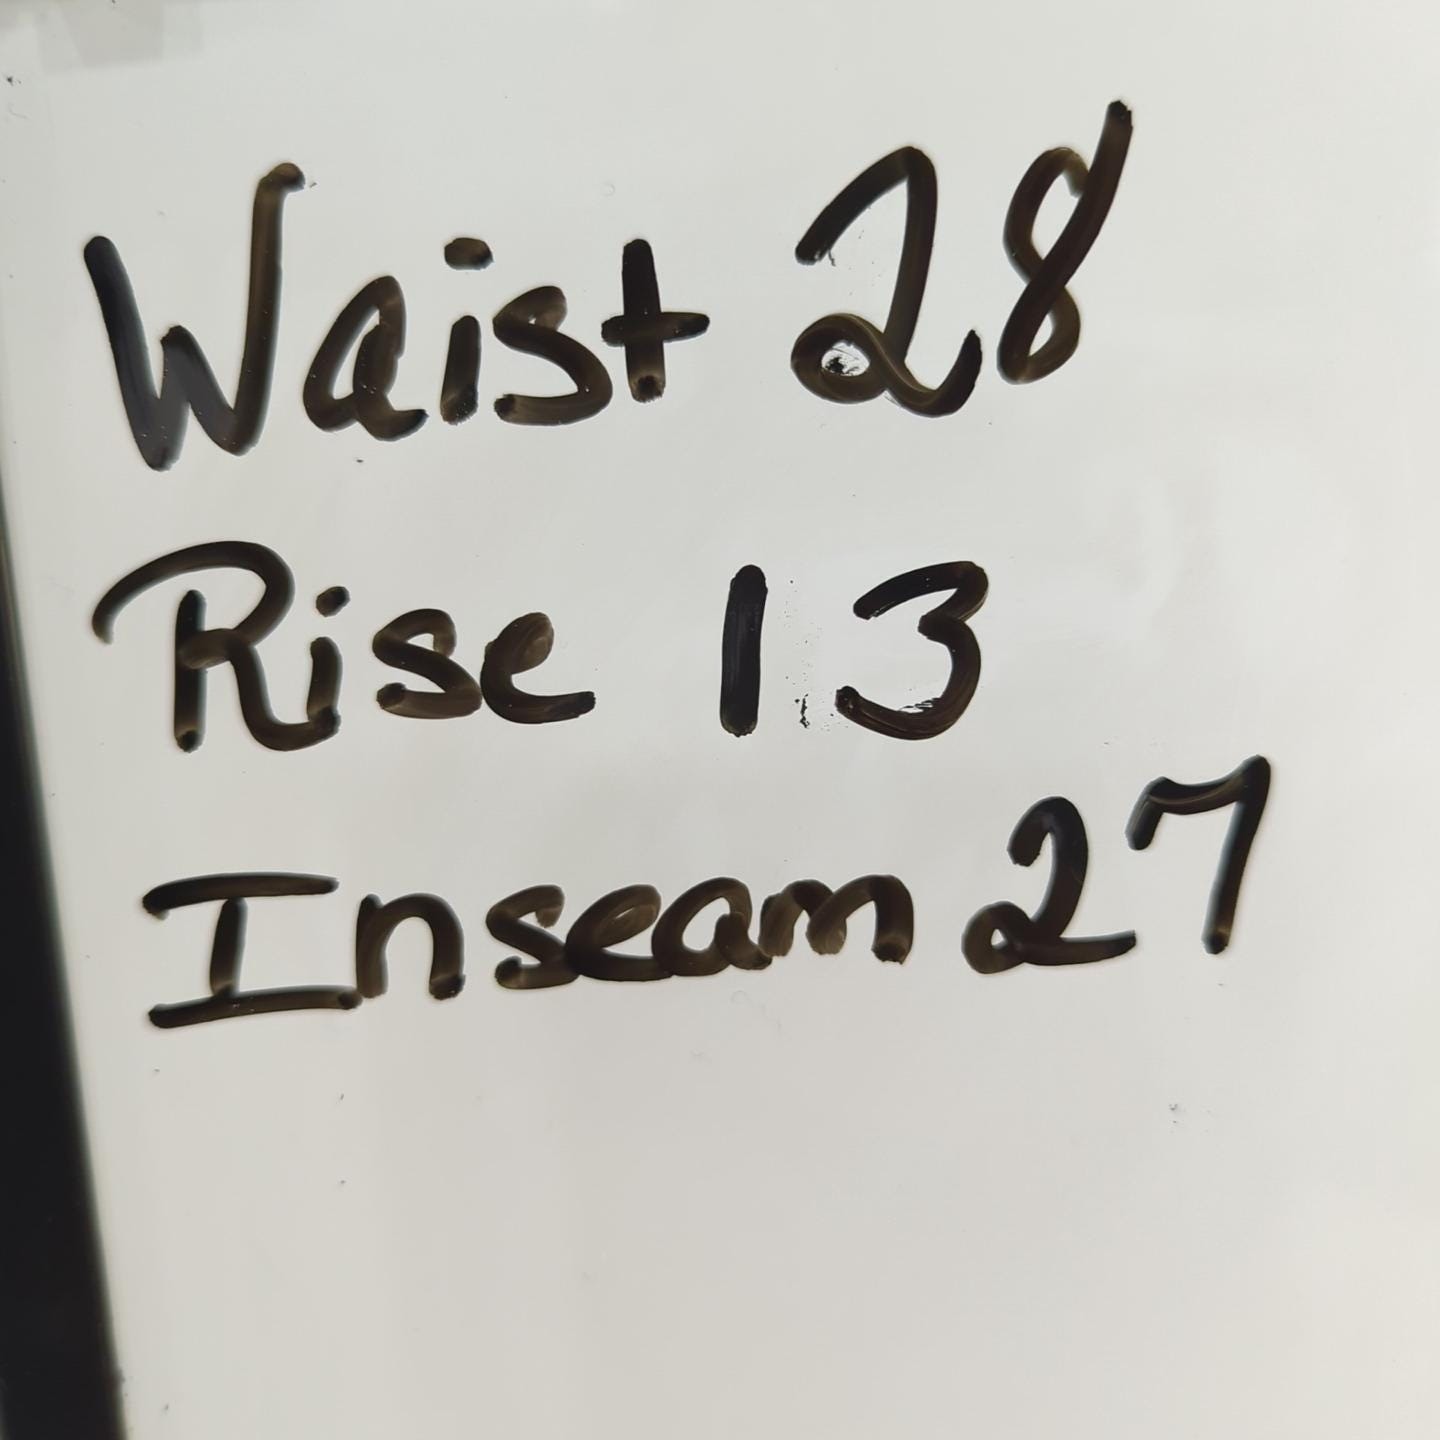 Waist 28
Rise 13
Inseam 27